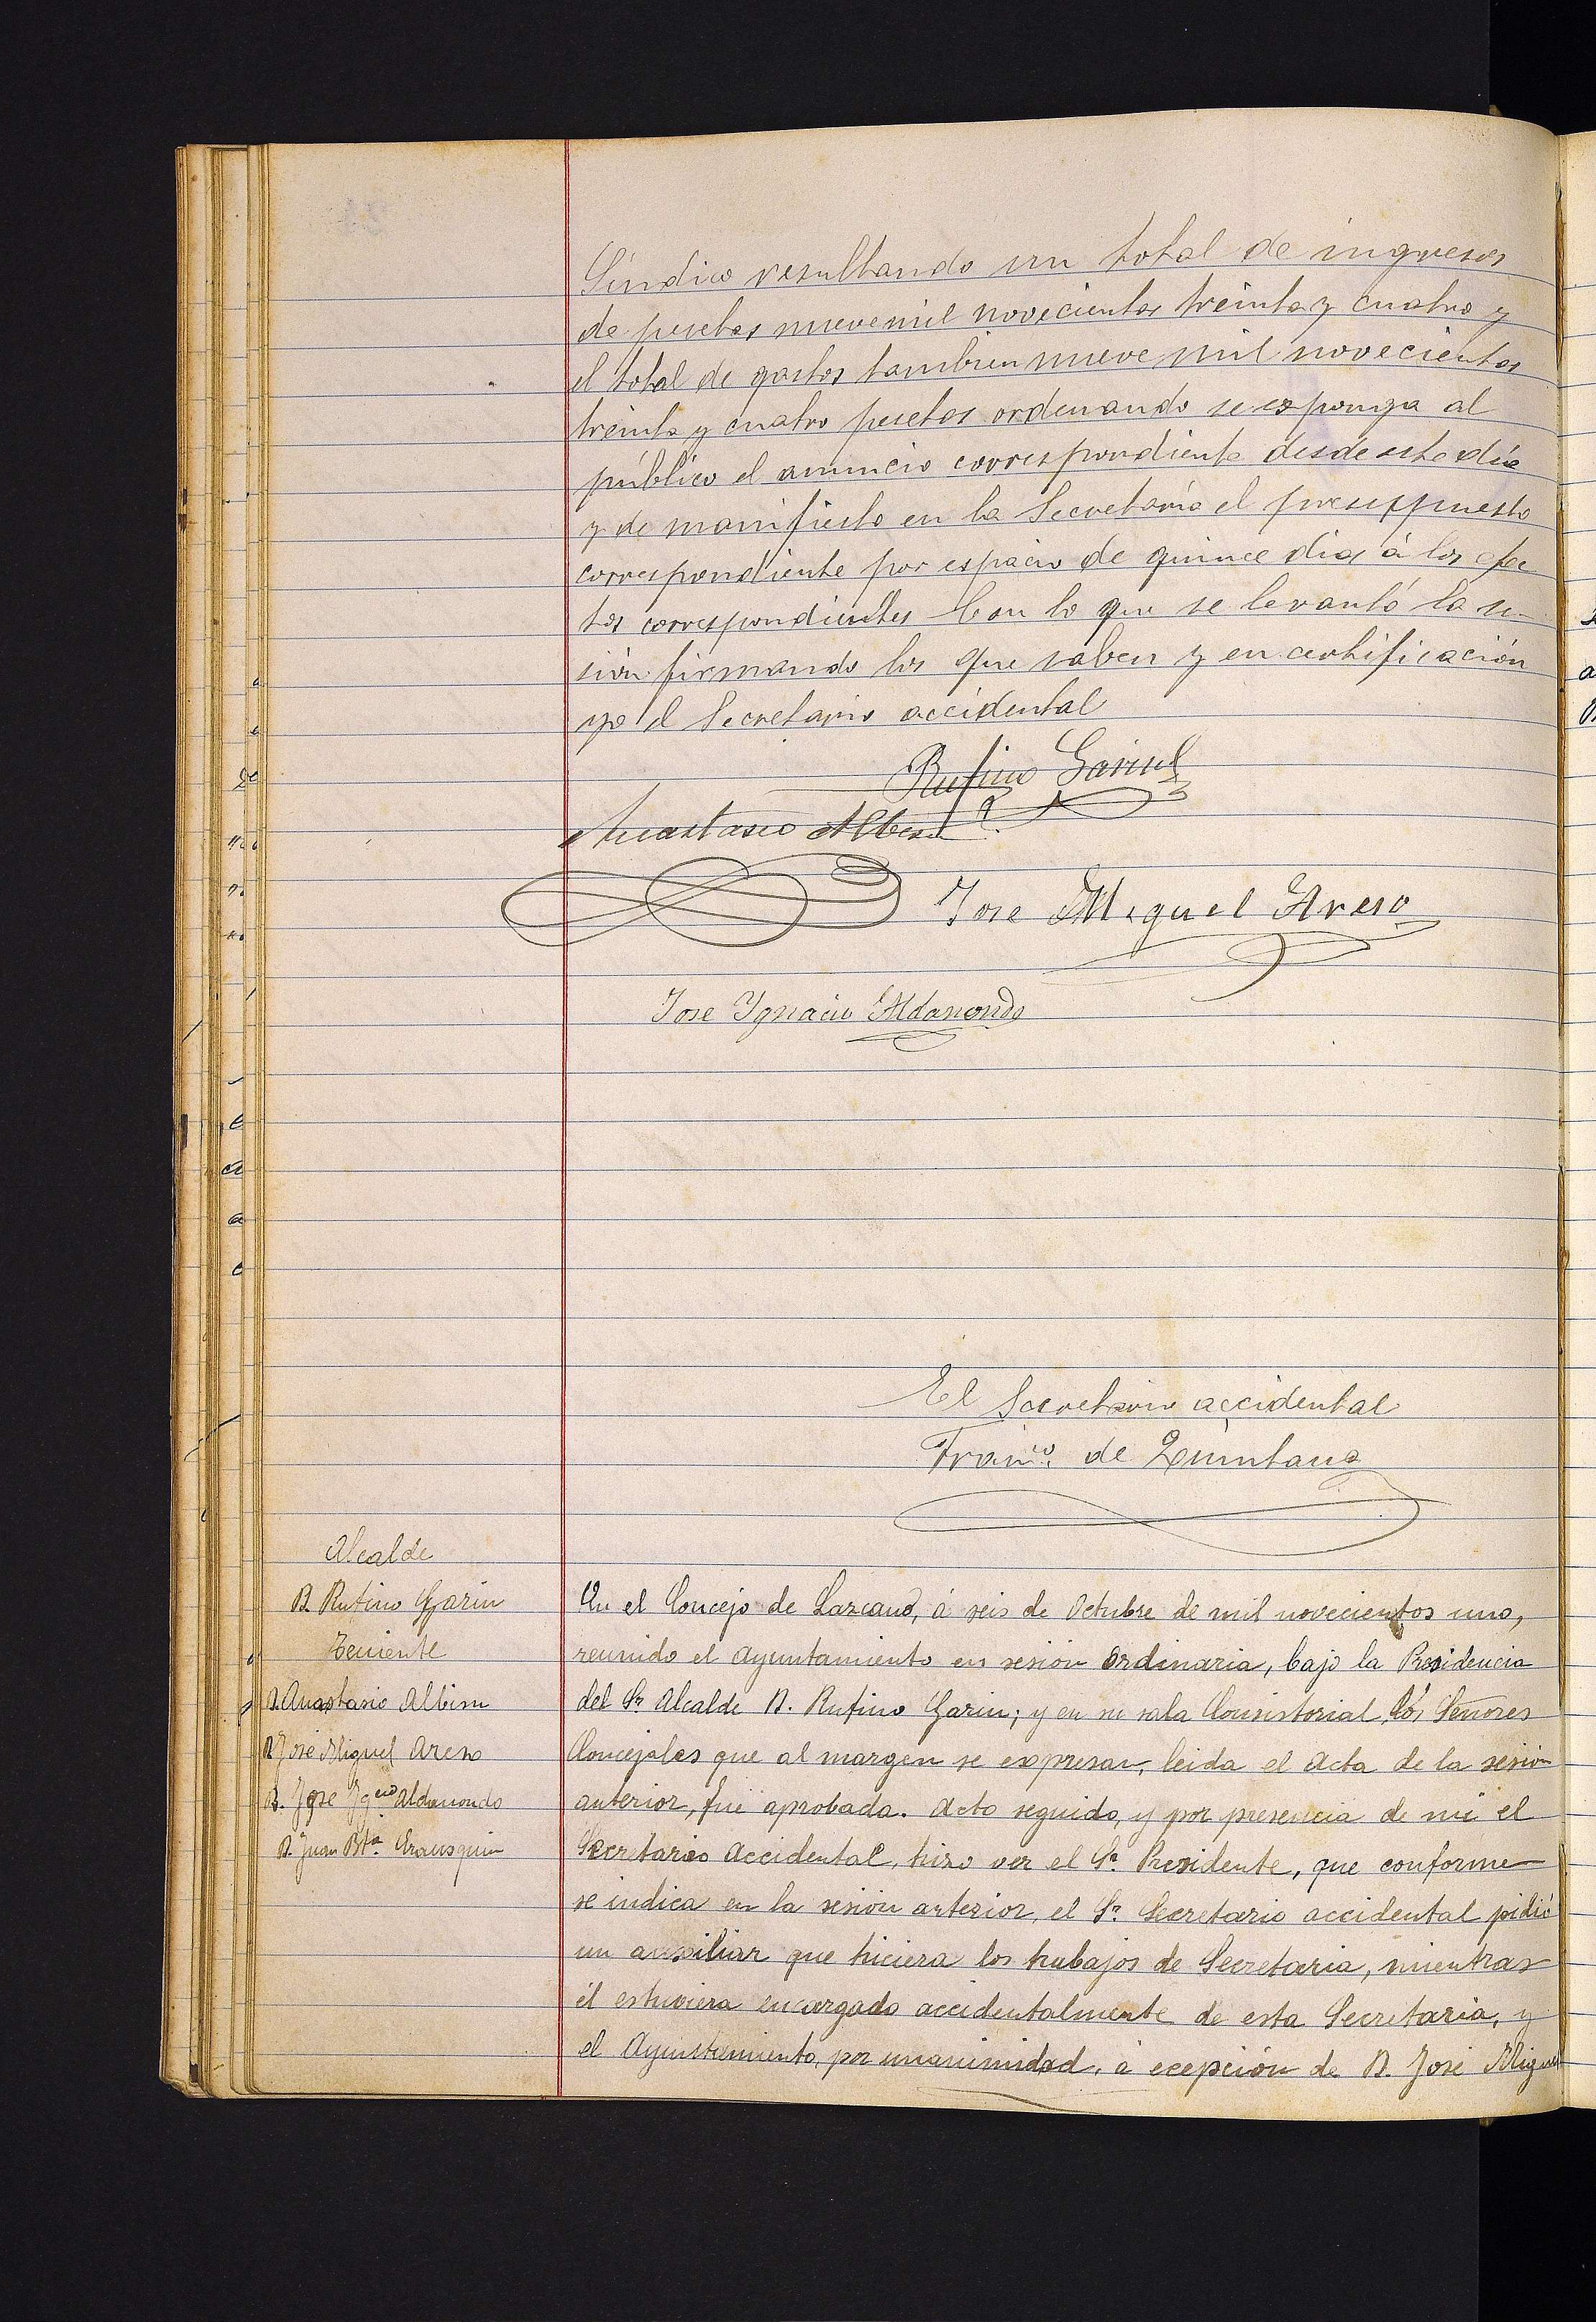 Síndico resultando un total de ingresos
de pesetas nuevemil novecientas treinta y cuatro y
el total de gastos tambien nueve mil novecientas
treinta y cuatro pesetas ordenando se esponga al
público el anuncio correspondiente desde este día
y de manifiesto en la Secretaría el presuppuesto
correspondiente por espacio de quince dias á los efec
tos correspondientes Con lo que se levantó la se-
sión firmando los que saben y en certificación
yo el Secretario accidental
Rufino Garin
Anastasio Albisu
Jose Miguel Areso
Jose Ygnacio Aldanondo
El Secretario accidental
Franco. de Quintana
Alcalde
D. Rufino Garin
Teniente
D. Anastasio Albisu
D. José Miguel Areso
D. Jose Ygcio Aldanondo
D. Juan Bta. Aransquin
En el Concejo de Lazcano, á seis de Octubre de mil novecientos uno,
reunido el Ayuntamiento en sesión ordinaria, bajo la Presidencia
del Sr. Alcalde D. Rufino Garin; y en su sala Consistorial, los Señores
Concejales que al margen se expresan, leida el Acta de la sesión
anterior, fué aprobada. Acto seguido, y por presencia de mí el
Secretario Accidental, hizo ver el Sr. Presidente, que conforme
se indica en la sesión anterior, el Sr. Secretario accidental pidió
un auxiliar que hiciera los trabajos de Secretaria, mientras
él estuviera encargado accidentalmente de esta Secretaría, y
el Ayuntamiento, por unanimidad, á ecepción de D. José Miguel